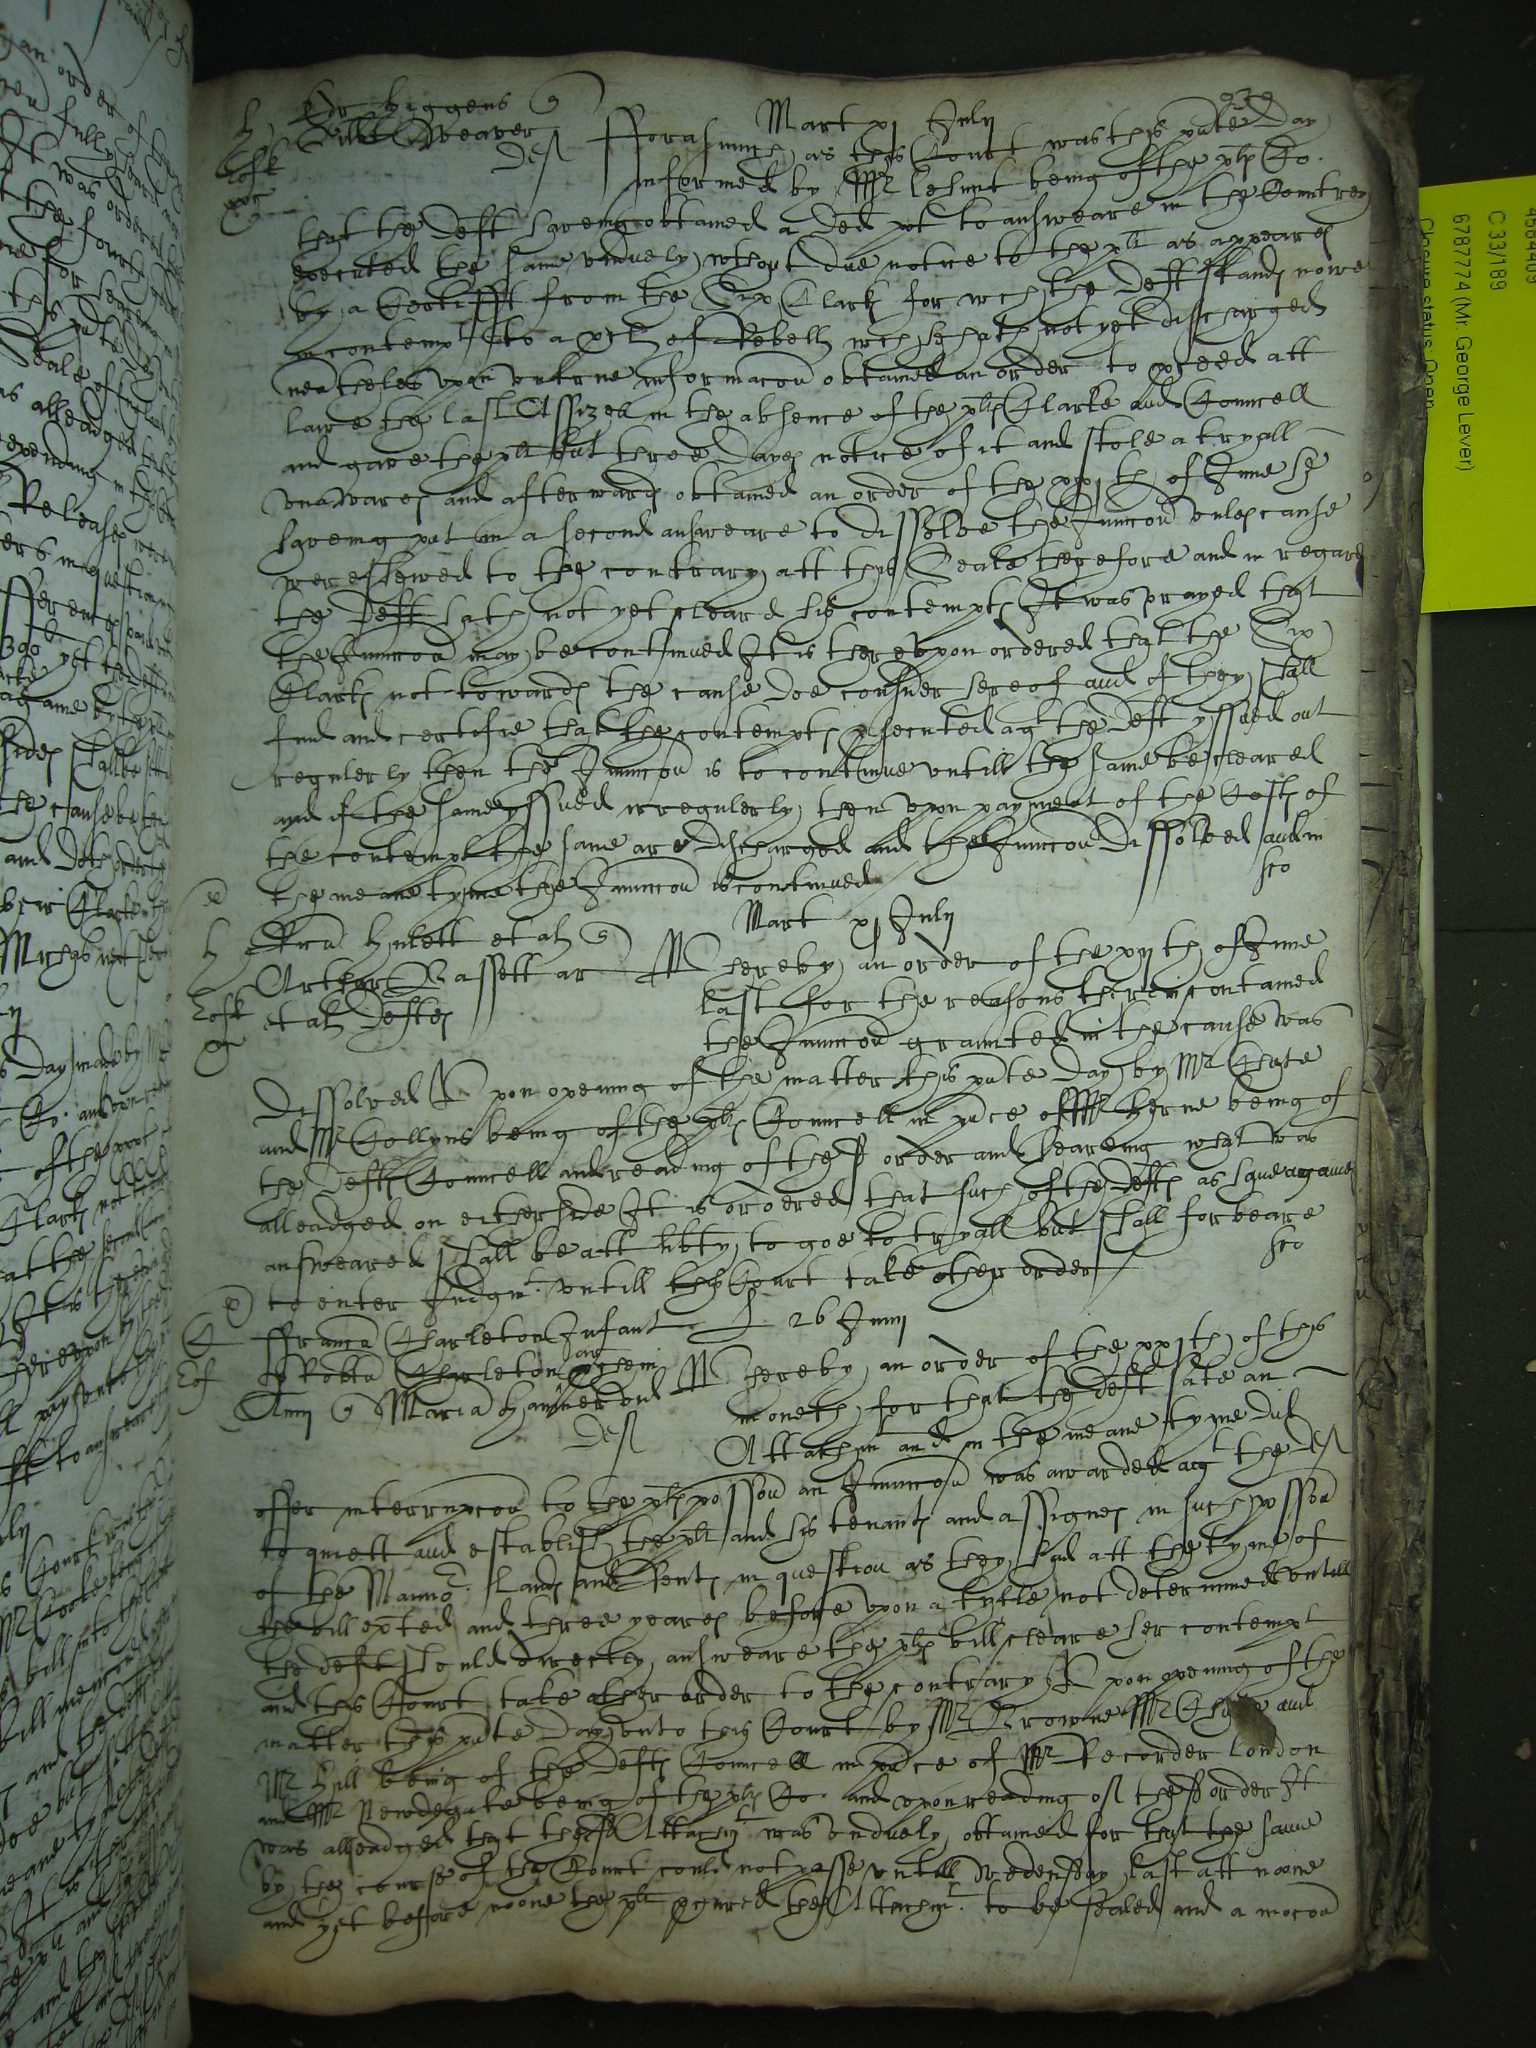 Mart xj Julij
Edr Higgens
Will Weaver Deft
Forasmuch as this Court was this pnte Day
informed by Mr Lehunt being of the plts Co.
that the Deft haveing obtained a Ded pot to answeare in the Countrey
executed the same unduely wthout due notice to the plt as appeares
by a Certifft from the Six Clark for wch the Deft stands nowe
in contempt to a of Rebell wch hee hath not yet discharged
netheles upon untrue informacon obtained an order to pceed att
lawe the last Assizes in the absence of the plts Clarke and Councell
and gave the plt but three Dayes notice of it and stole a tryall
unawares and afterwards obtained an order of the xxj th of June he
haveing put in a second answeare to dissolve the Iniuncon unles cause
were shewed to the contrary att this Seale therefore and in regard
the Deft hath not yet cleard his contempts It was prayed that
the Iniuncon may be continued It is thereupon ordered that the Six
Clarks not towards the cause doe consider hereof and if they shall
find and certifie that the contempts psecuted agt the Deft yssued out
regulerly then the Iniuncon is to continue untill the same be cleared
and if the same yssued irregulerly then upon payment of the Costs of
the contempt the same are discharged and the Iniuncon dissolved and in
the meane tyme the Iniuncon is continued
Mart xj Julij
Fra Hulett et al
Arthur Bassett ar
et al Defts
Whereby an order of the xij th of June
last for the reasons therein contained
the Iniuncon graunted in the cause was
dissolved Upon opening of the matter this pnte Day by Mr Chute
and Mr Collyns being of the plts Councell in pnce of Mr Herne being of
the Defts Councell and reading of the sd order and heareing what was
alleadged on either side It is ordered that such of the Defts as have
answeared shall be att libty to goe to tryall but shall forbeare
to enter Judgmt untill this Court take other order
26 Junij
Franc Charleton Infant
p Robtu Charleton ar
Maria Hammerond
Deft
Whereby an order of the xxj th of this
moneth for that the Deft sate an
Attachmt and in the meane tyme did
offer interrupcon to the plts possion an Iniuncon was awarded agt the Deft
to quiett and establish the plt and his tenants and assignes in such possion
of the Mannor lands and Rents in question as they had att the tyme of
the bill exted and three yeares before upon a tytle not determined untill
the deft should directly answeare the plts bill cleare her contempt
and this Court take other order to the contrary Upon opening of the
matter this pnte Day unto this Court by Mr Browne Mr and
Mr Hill being of the Defts Councell in pnce of Mr Recorder London
and Mr Newdegate being of the plts Co. and upon reading of the sd order It
was alleadged that the sd Attachmt was unduely obtained for that the same
by the course of the Court could not passe untill Wedensday last att noone
and yet before noone the plt pcured the Attachmt to be sealed and a mocon
C 33/189
6787774 (Mr. George Lever)
Closure status: Open